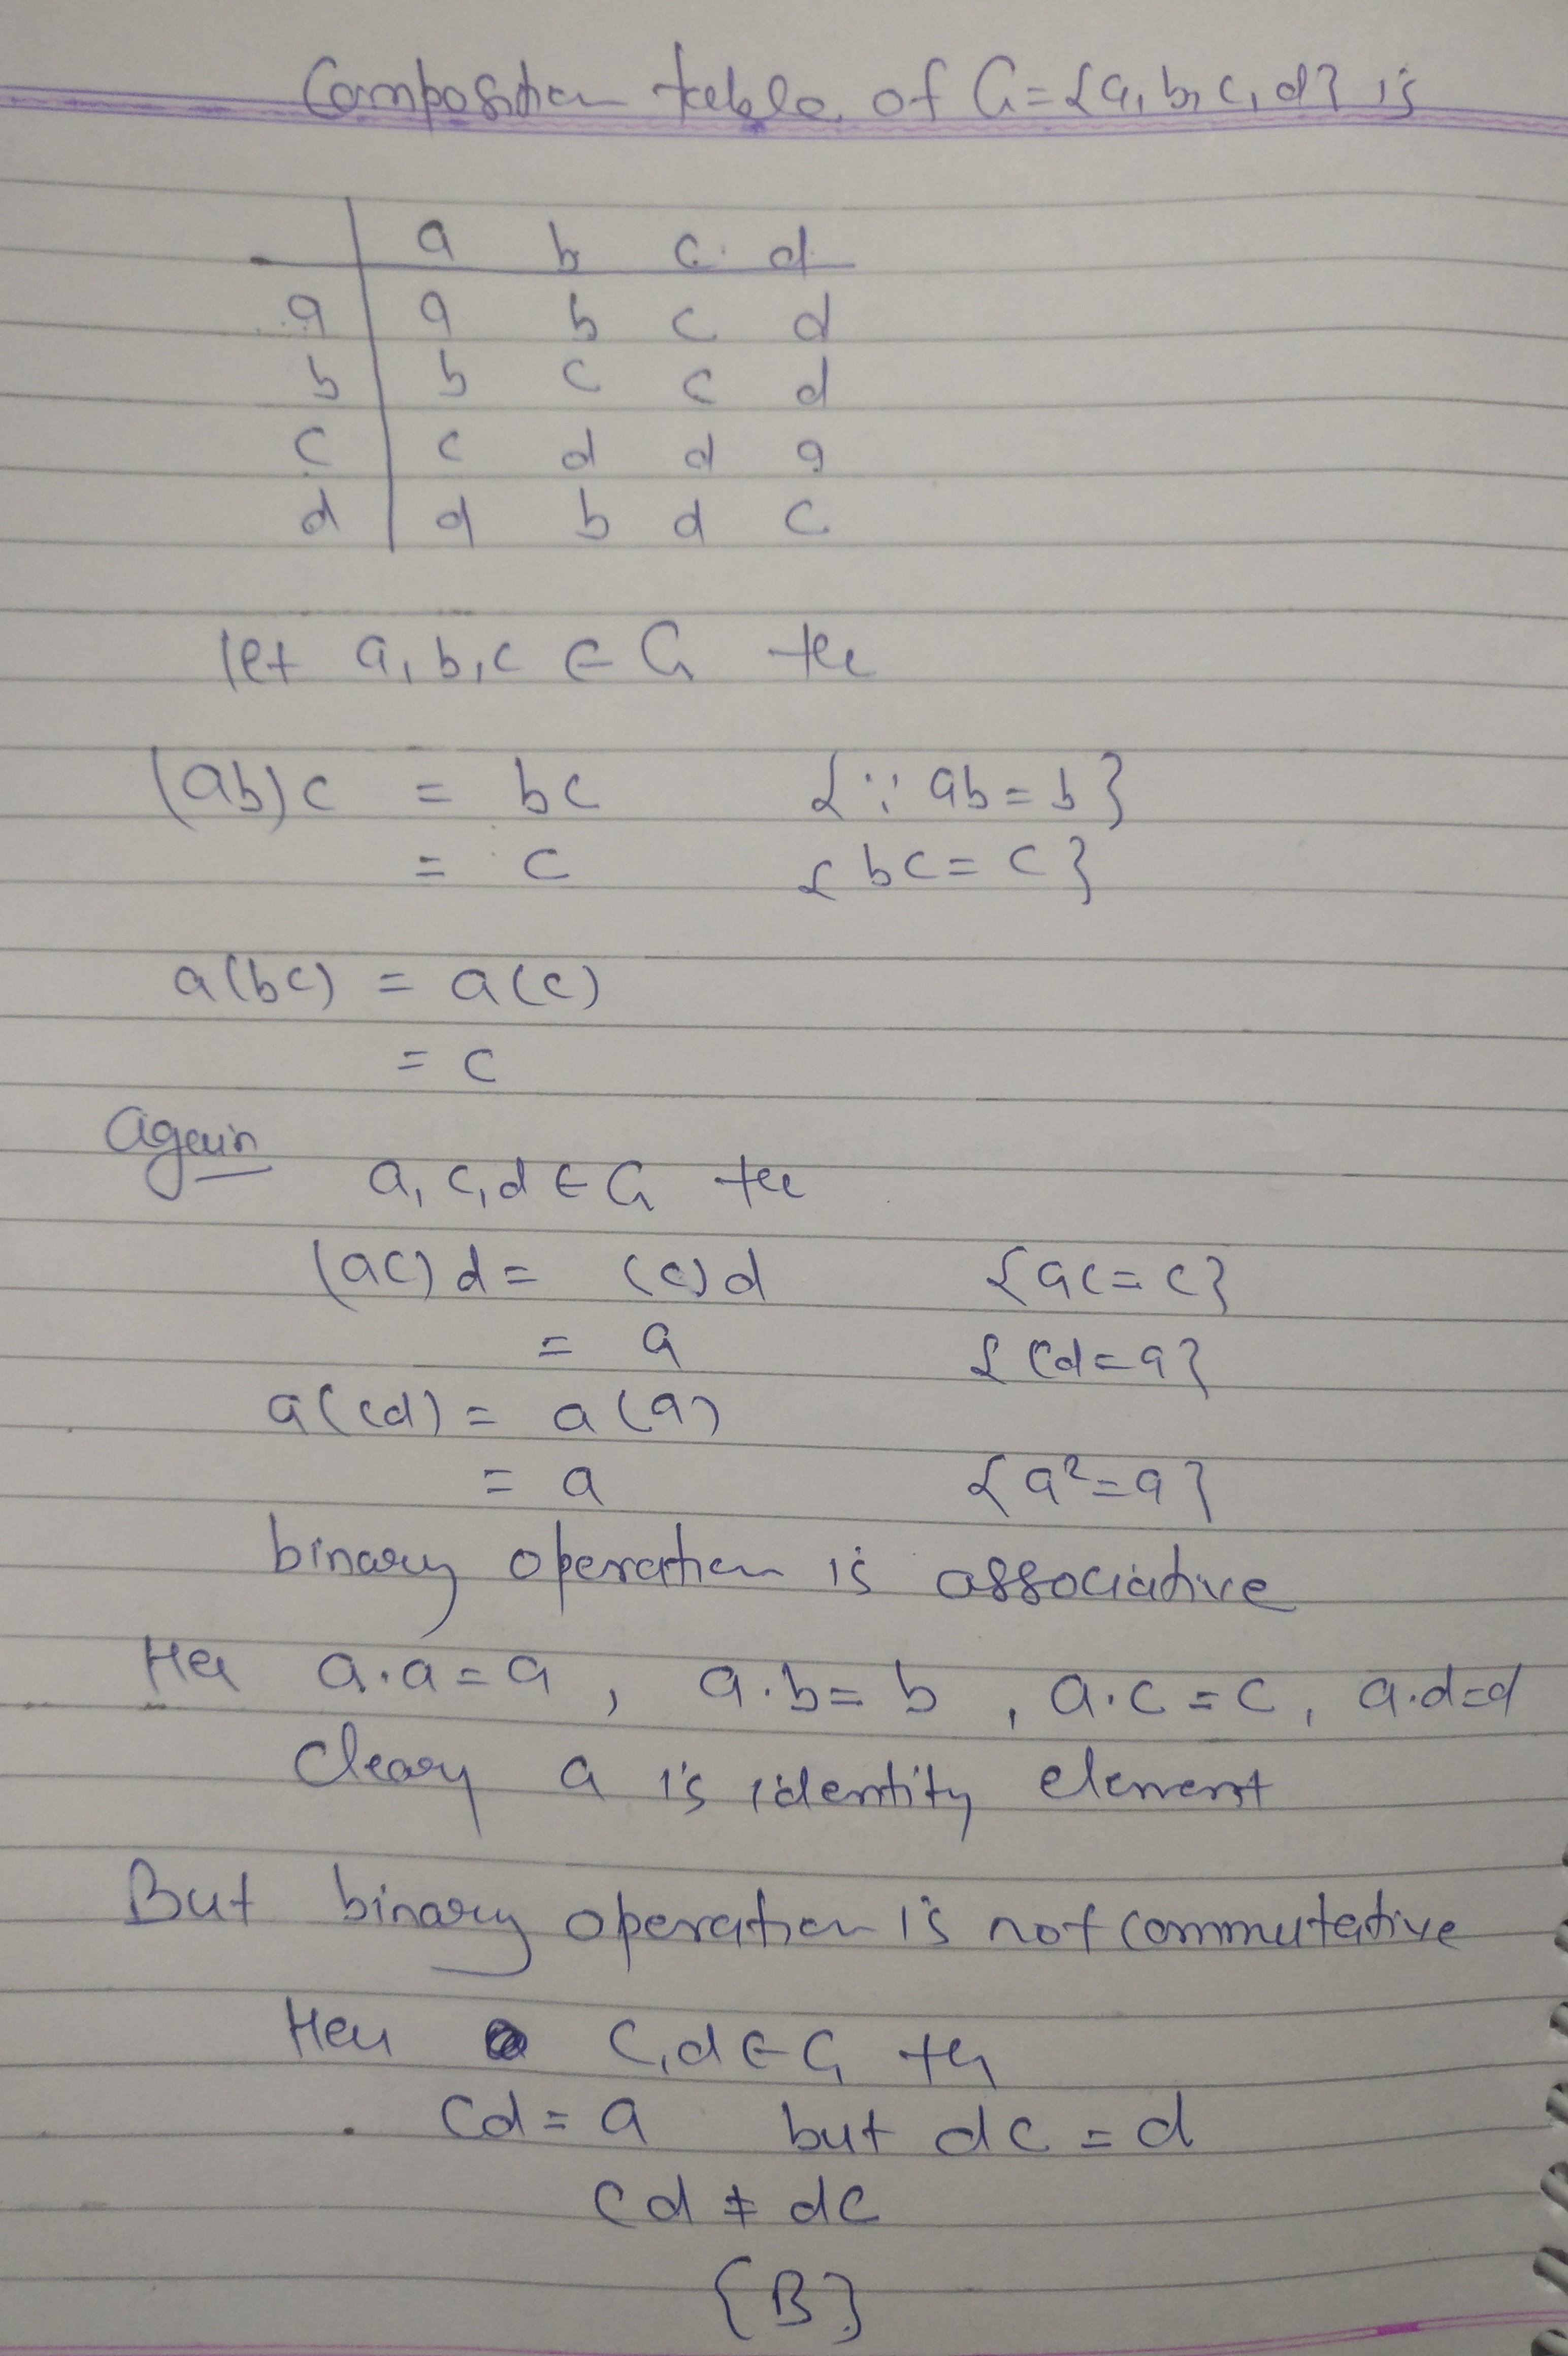 Composition table of G={a,b,c,d} is
a b c d
a a b c d
b b c c d
c c d d a
d d b d c
let a,b,c ∈ G the
(ab)c = bc {∵ ab=b}
= c {bc=c}
a(bc) = a(c)
= c
Again
a,c,d ∈ G the
(ac)d = (c)d {ac=c}
= a {cd=a}
a(cd) = a(a)
= a {a²=a}
binary operation is associative
Her a.a=a , a.b=b , a.c=c, a.d=d
Cleary a is identity element
But binary operation is not commutative
Her c,d ∈ G
cd = a but dc = d
cd ≠ dc
{B}